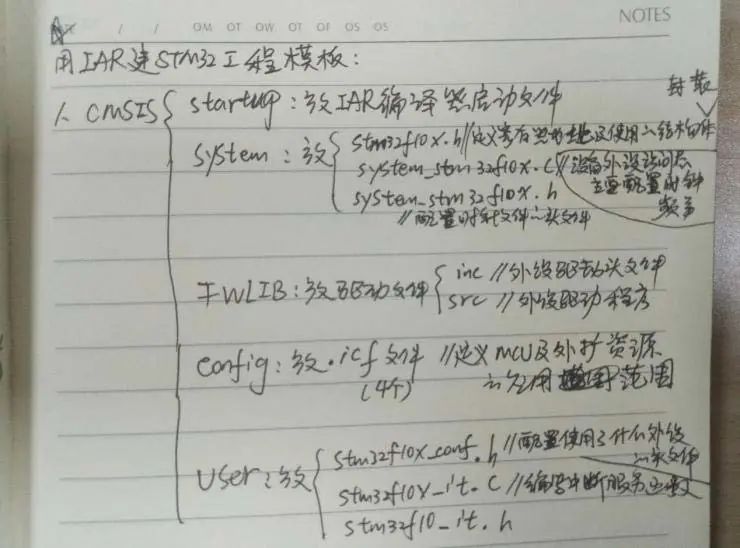 NOTES
/ / OM OT OW OT OF OS OS
用IAR建STM32工程模板:
1、CMSIS
startup:放IAR编译器启动文件
封装
system:放
stm32f10x.h //定义寄存器地址及使用的结构体
system_stm32f10x.c //设备外设访问层
主要配置时钟
频率
system_stm32f10x.h
//配置时钟文件的头文件
FWLIB:放驱动文件
inc //外设驱动头文件
src //外设驱动程序
config:放.icf文件 //定义MCU及外扩资源
(4个)
的应用范围
User:放
stm32f10x_conf.h //配置使用了什么外设
的头文件
stm32f10x_it.c //编写中断服务函数
stm32f10_it.h